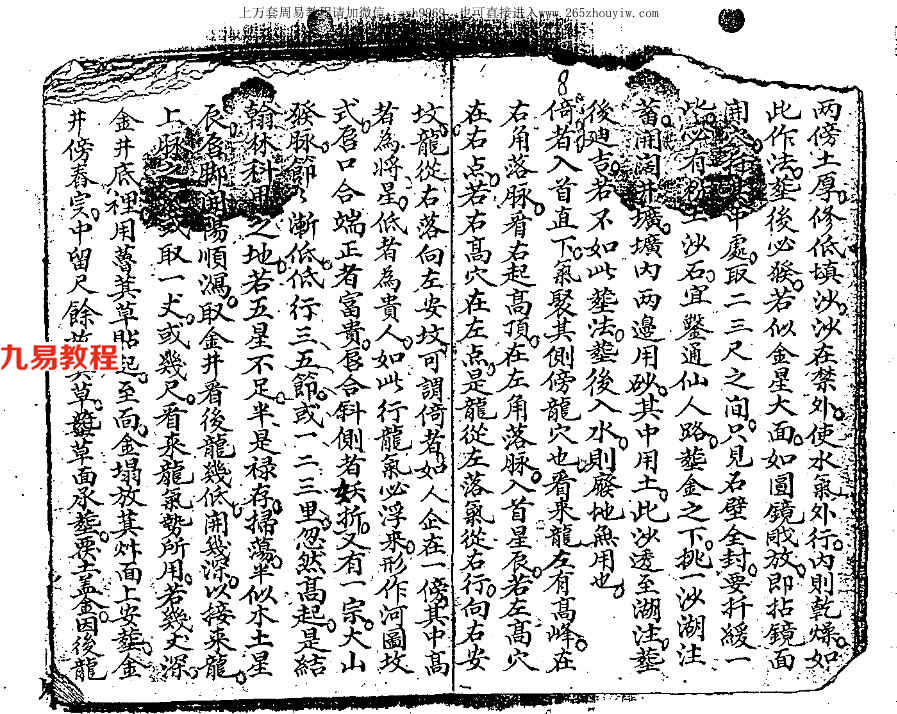 上万套周易教程请加微信 也可直接进入www.265zhouyiw.com
8
两傍土厚修低填沙沙在禁外使水氣外行内則乾燥如
此作法塟後必發若似金星大面如圓鏡敞放即拈鏡面
開 中處取二三尺之间只見石壁全封要扦緩一
必有 土沙石宜鑿通仙人路塟金之下挑一沙湖注
蓄開闊井壙壙内两邉用砂其中用土此沙透至湖注塟
後廸吉若不如此塟法塟後入水則廢地魚用也
倚者入首直下氣聚其側傍龍穴也看來龍左有高峰在
右角落脉看右起高頂在左角落脉入首星辰若左高穴
在右点若右高穴在左点是龍從左落氣從右行向右安
坟龍從右落向左安坟可謂倚者如人企在一傍其中高
者為將星低者為貴人如此行龍氣必浮來形作河圖坟
式唇口合端正者富貴唇合斜側者妖折又有一宗大山
發脉節々漸低低行三五節或一二三里忽然高起是結
翰林科甲之地若五星不足半是禄存掃蕩半似水土星
辰 脚開陽順濕取金井看後龍幾低開幾深以接來龍
上脉之 或取一丈或幾尺看来龍氣勢所用若幾丈深
金井底裡用蓍萁草貼起至面金塌放萁炑面上安塟金
井傍舂实中留尺餘 萁草 草面承塟要土盖金因後龍
九易教程